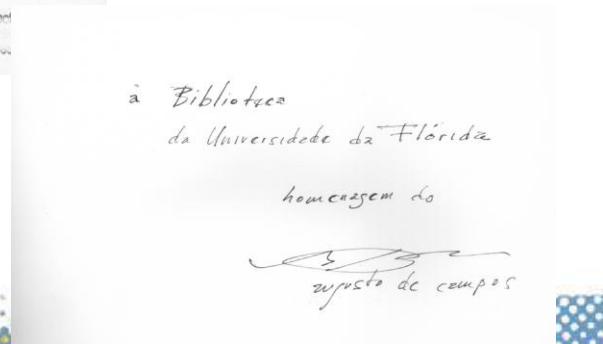 à Biblioteca
da Universidade da Flórida
homenagem do
augusto de campos